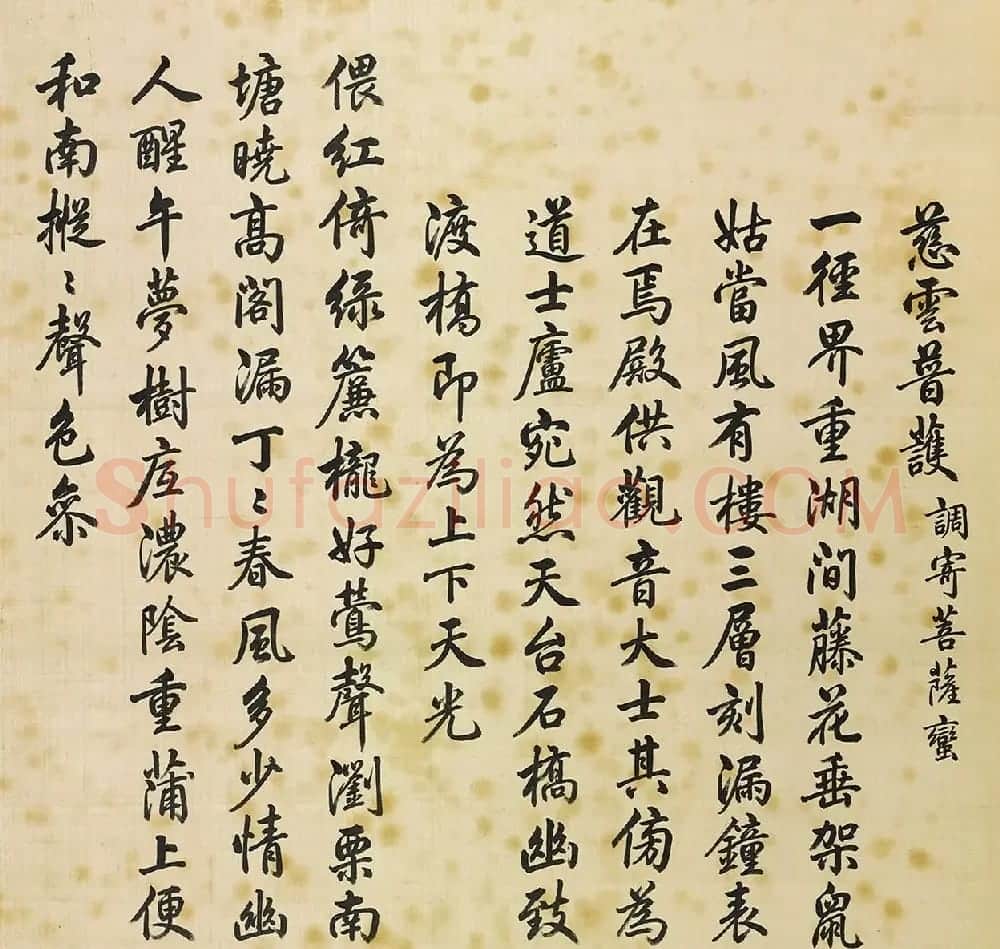 慈雲普護 調寄菩薩蠻
一徑界重湖間藤花垂架鼠
姑當風有樓三層刻漏鐘表
在焉殿供觀音大士其傍為
道士廬宛然天台石橋幽致
渡橋即為上下天光
偎紅倚綠簾櫳好鶯聲瀏栗南
塘曉高閣漏丁〻春風多少情幽
人醒午夢樹底濃陰重蒲上便
和南摐〻聲色參
Shufaziliao.COM